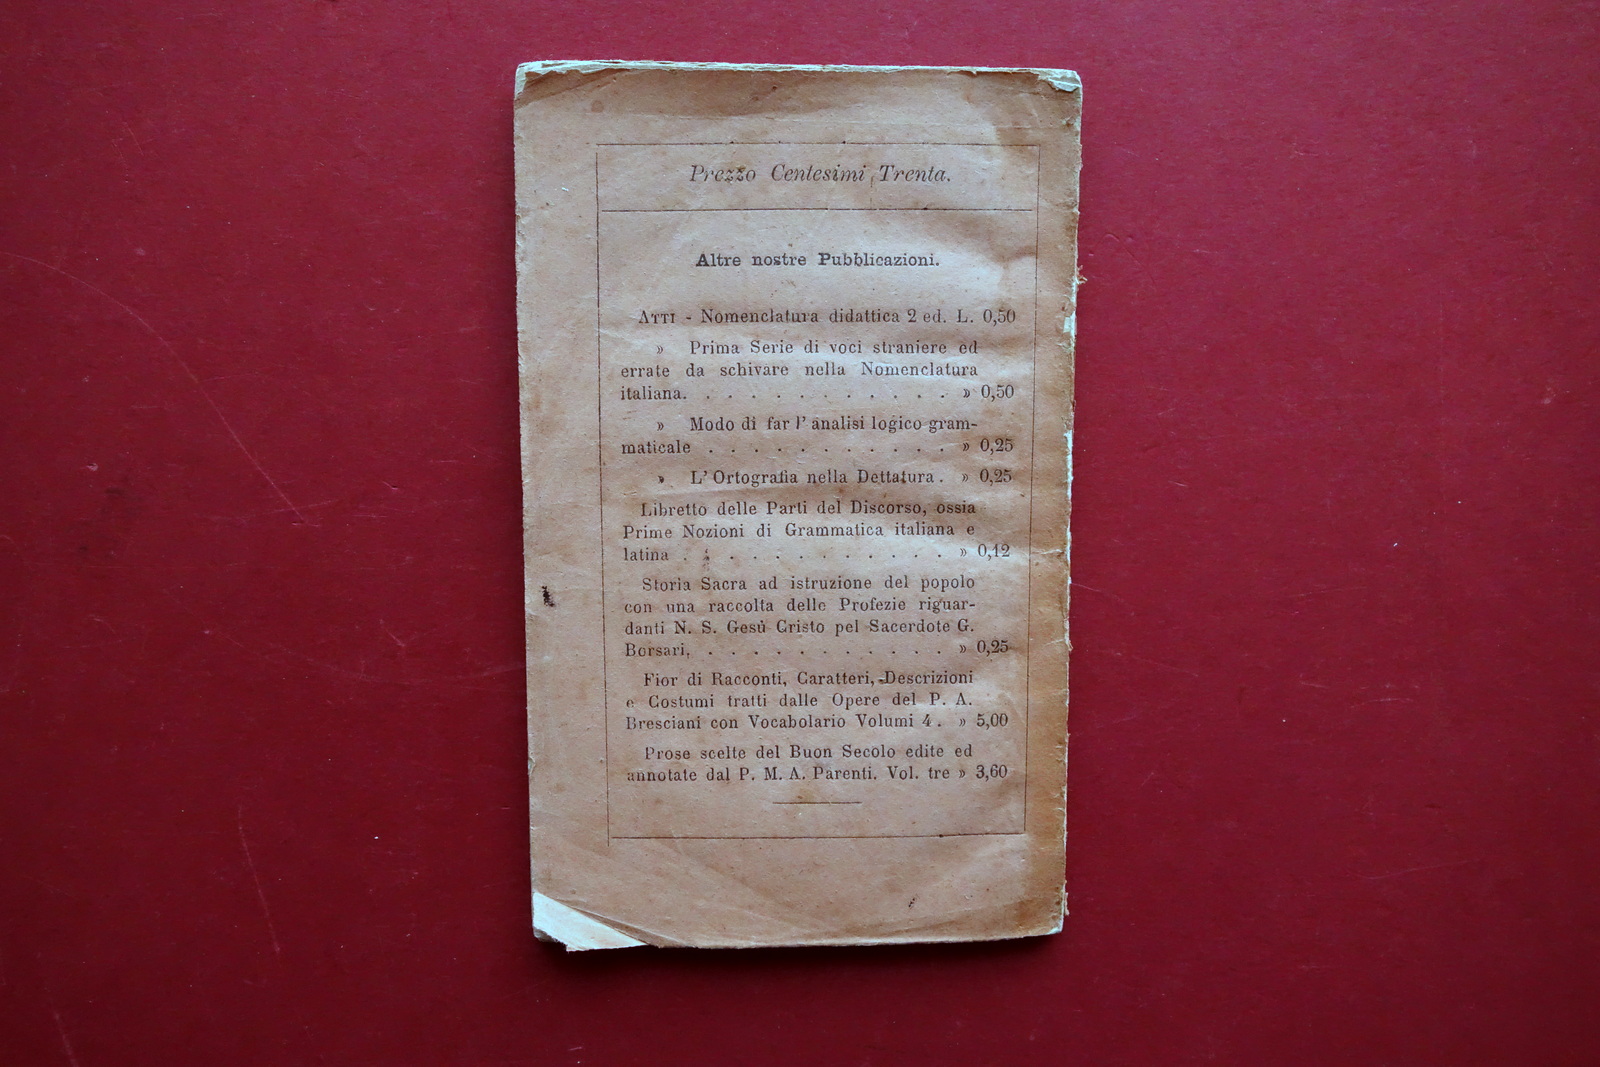 Prezzo Centesimi Trenta.
Altre nostre Pubblicazioni.
ATTI - Nomenclatura didattica 2 ed. L. 0,50
» Prima Serie di voci straniere ed
errate da schivare nella Nomenclatura
italiana. . . . . . . . . . . . » 0,50
» Modo di far l' analisi logico gram-
maticale . . . . . . . . . . . » 0,25
» L' Ortografia nella Dettatura . » 0,25
Libretto delle Parti del Discorso, ossia
Prime Nozioni di Grammatica italiana e
latina . . . . . . . . . . . . » 0,12
Storia Sacra ad istruzione del popolo
con una raccolta delle Profezie riguar-
danti N. S. Gesù Cristo pel Sacerdote G.
Borsari, . . . . . . . . . . . » 0,25
Fior di Racconti, Caratteri, Descrizioni
e Costumi tratti dalle Opere del P. A.
Bresciani con Vocabolario Volumi 4 . » 5,00
Prose scelte del Buon Secolo edite ed
annotate dal P. M. A. Parenti. Vol. tre » 3,60